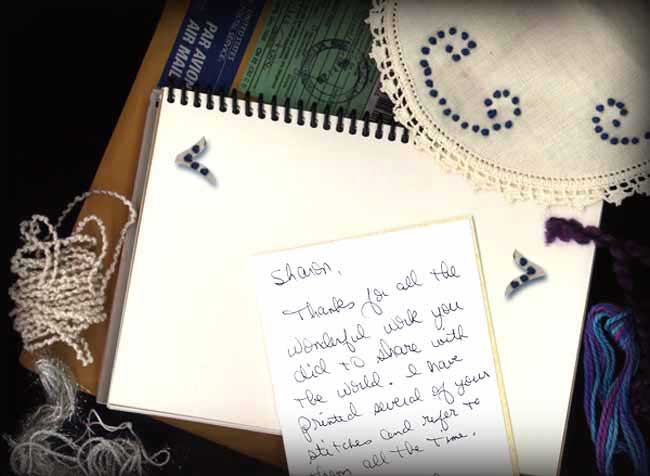 UNITED STATES
POSTAL SERVICE
PAR AVION
AIR MAIL
Sharon,
Thanks for all the
wonderful work you
did to share with
the world. I have
printed several of your
stitches and refer to
them all the time.